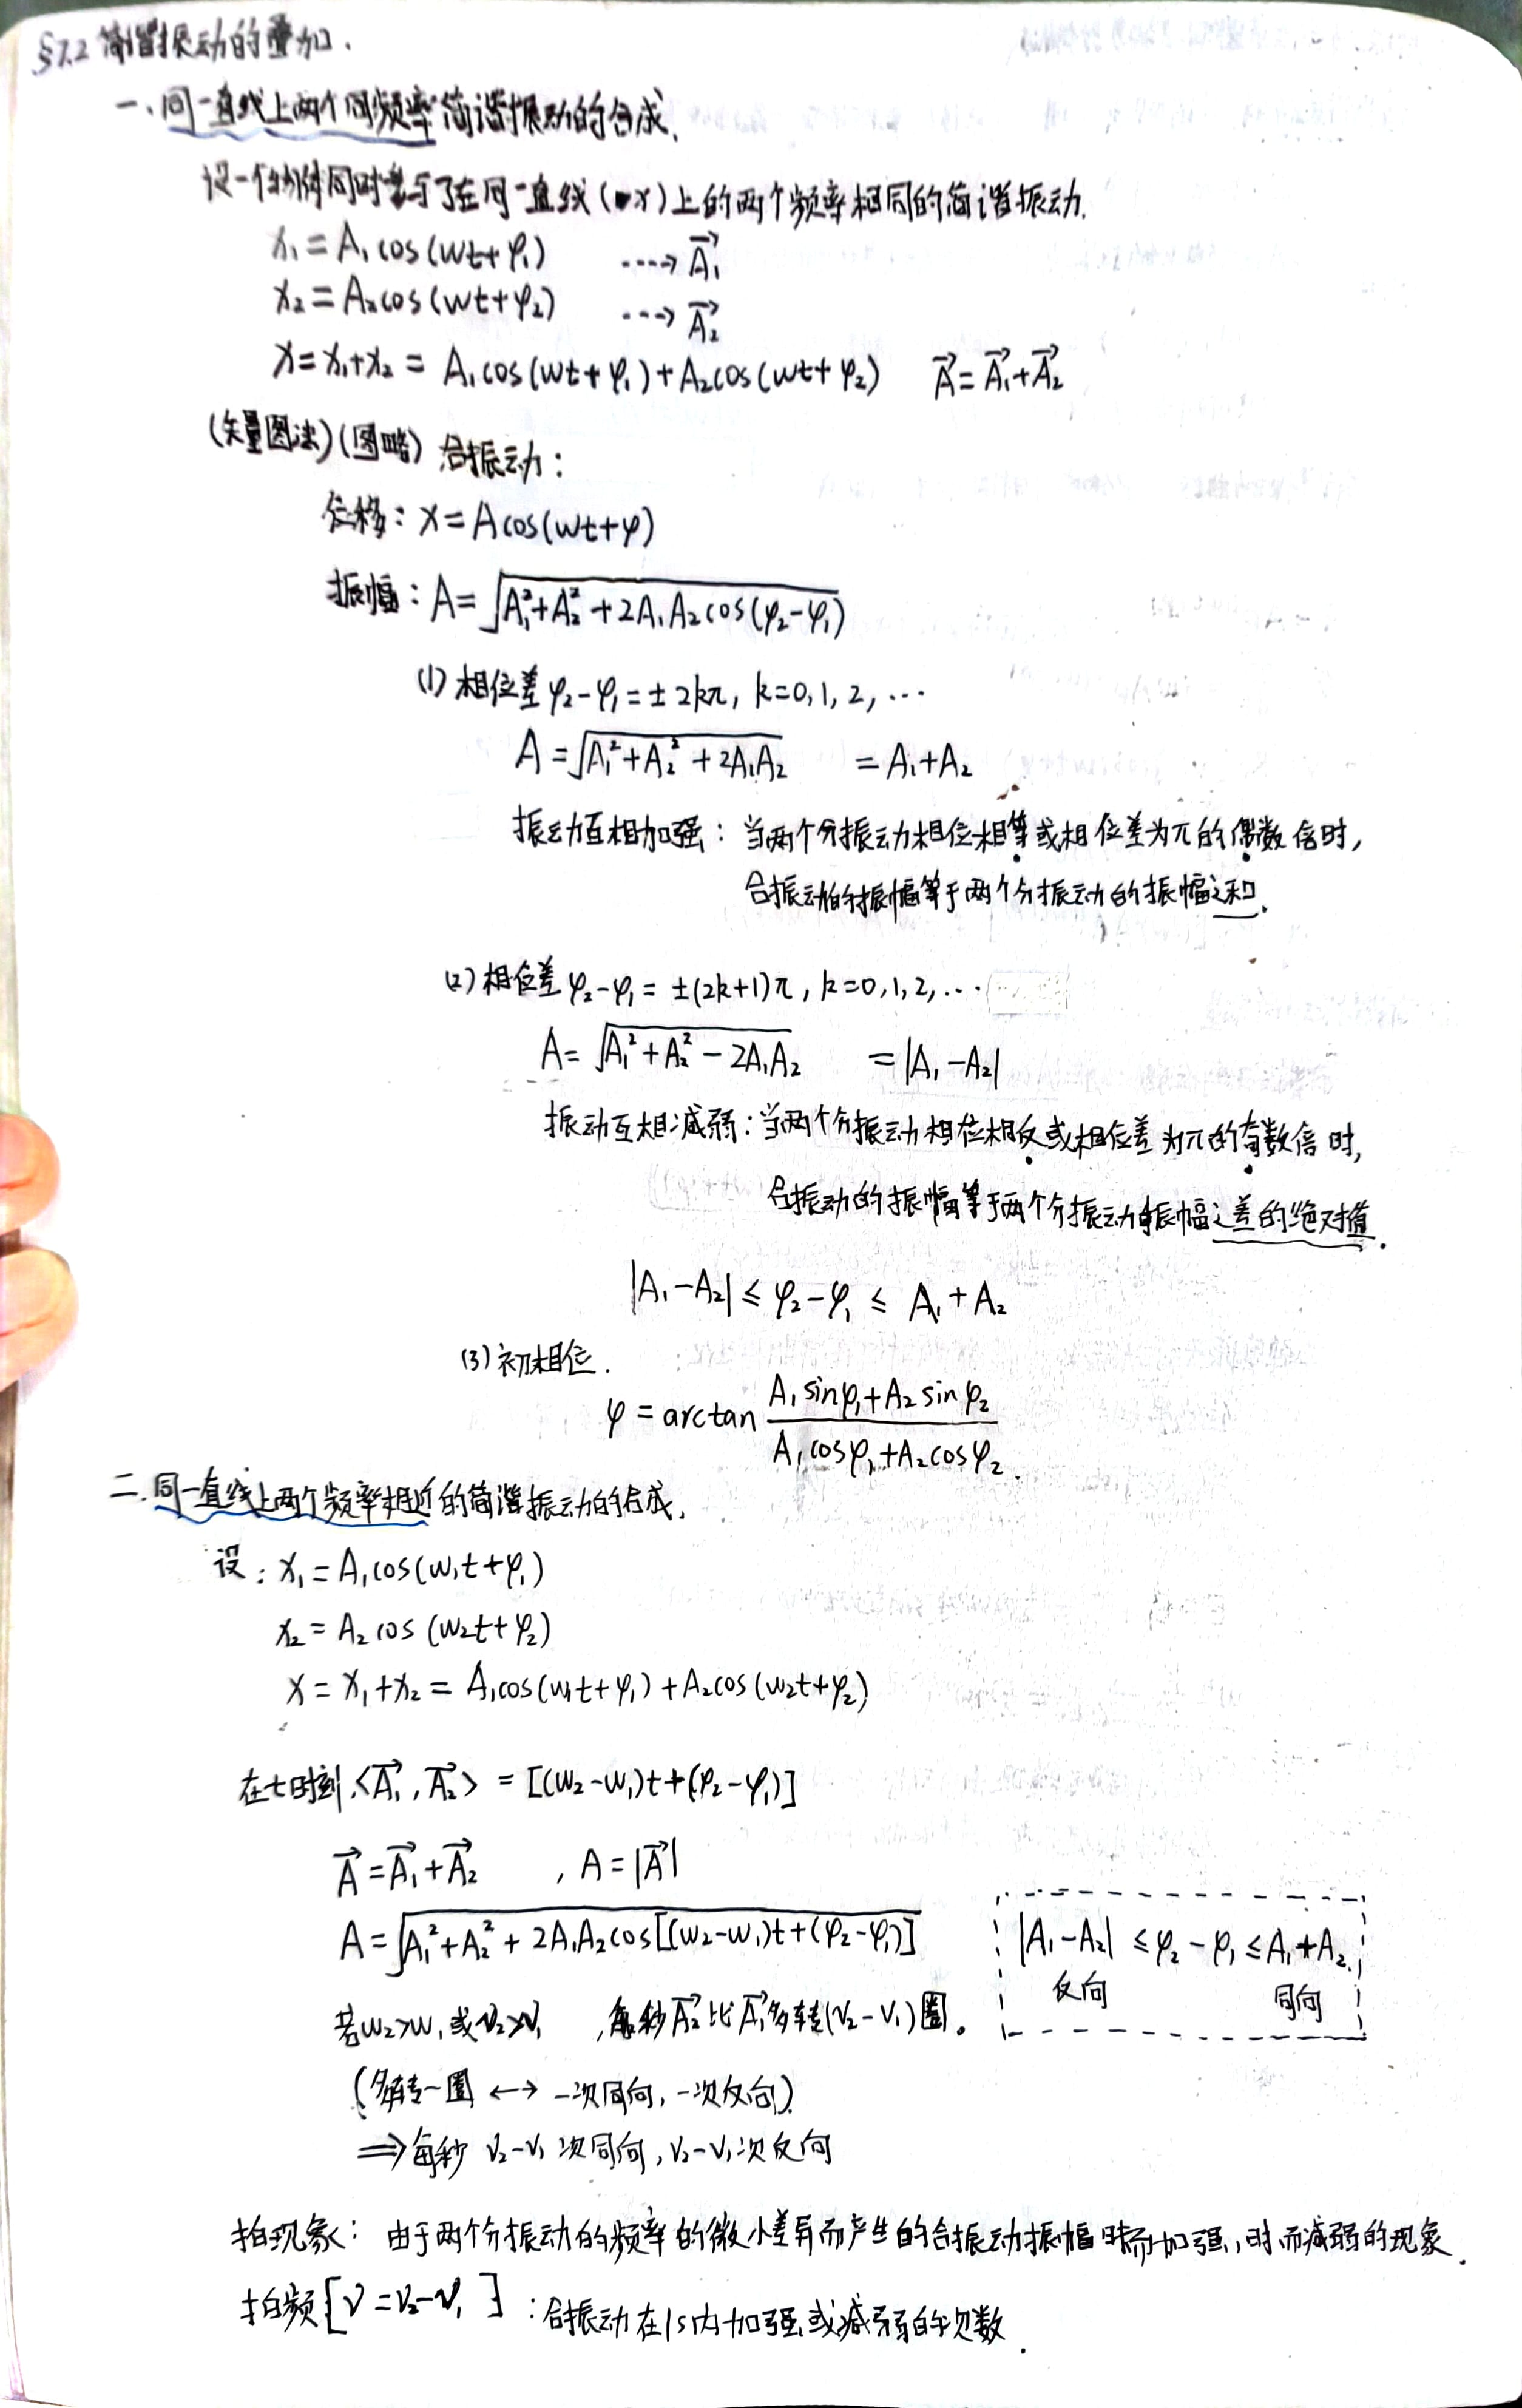 §7.2 简谐振动的叠加.
一.同一直线上两个同频率简谐振动的合成.
设一个物体同时参与了在同一直线(x)上的两个频率相同的简谐振动.
x₁ = A₁cos(ωt+φ₁) ----> A₁→
x₂ = A₂cos(ωt+φ₂) ---> A₂→
x = x₁+x₂ = A₁cos(ωt+φ₁)+A₂cos(ωt+φ₂) A→=A₁→+A₂→
(矢量图法)(图略) 合振动:
位移: x = Acos(ωt+φ)
振幅: A = √(A₁²+A₂²+2A₁A₂cos(φ₂-φ₁))
(1) 相位差 φ₂-φ₁ = ±2kπ, k=0,1,2,…
A = √(A₁²+A₂²+2A₁A₂) = A₁+A₂
振动互相加强: 当两个分振动相位相等或相位差为π的偶数倍时,
合振动的振幅等于两个分振动的振幅之和.
(2) 相位差 φ₂-φ₁ = ±(2k+1)π, k=0,1,2,…
A = √(A₁²+A₂²-2A₁A₂) = |A₁-A₂|
振动互相减弱: 当两个分振动相位相反或相位差为π的奇数倍时,
合振动的振幅等于两个分振动振幅之差的绝对值.
|A₁-A₂| ≤ φ₂-φ₁ ≤ A₁+A₂
(3) 初相位.
φ = arctan (A₁sinφ₁+A₂sinφ₂)/(A₁cosφ₁+A₂cosφ₂).
二.同一直线上两个频率相近的简谐振动的合成.
设: x₁ = A₁cos(ω₁t+φ₁)
x₂ = A₂cos(ω₂t+φ₂)
x = x₁+x₂ = A₁cos(ω₁t+φ₁)+A₂cos(ω₂t+φ₂)
在t时刻,<A₁→,A₂→> = [(ω₂-ω₁)t+(φ₂-φ₁)]
A→=A₁→+A₂→ , A=|A→|
A = √(A₁²+A₂²+2A₁A₂cos[(ω₂-ω₁)t+(φ₂-φ₁)])
|A₁-A₂| ≤ φ₂-φ₁ ≤ A₁+A₂.
反向 同向
若ω₂>ω₁或ν₂>ν₁ ,每秒A₂→比A₁→多转(ν₂-ν₁)圈。
(多转一圈 ⟷ 一次同向,一次反向).
⟹每秒 ν₂-ν₁ 次同向, ν₂-ν₁次反向
拍现象: 由于两个分振动的频率的微小差异而产生的合振动振幅时而加强,时而减弱的现象.
拍频[ν=ν₂-ν₁]: 合振动在1s内加强或减弱的次数.